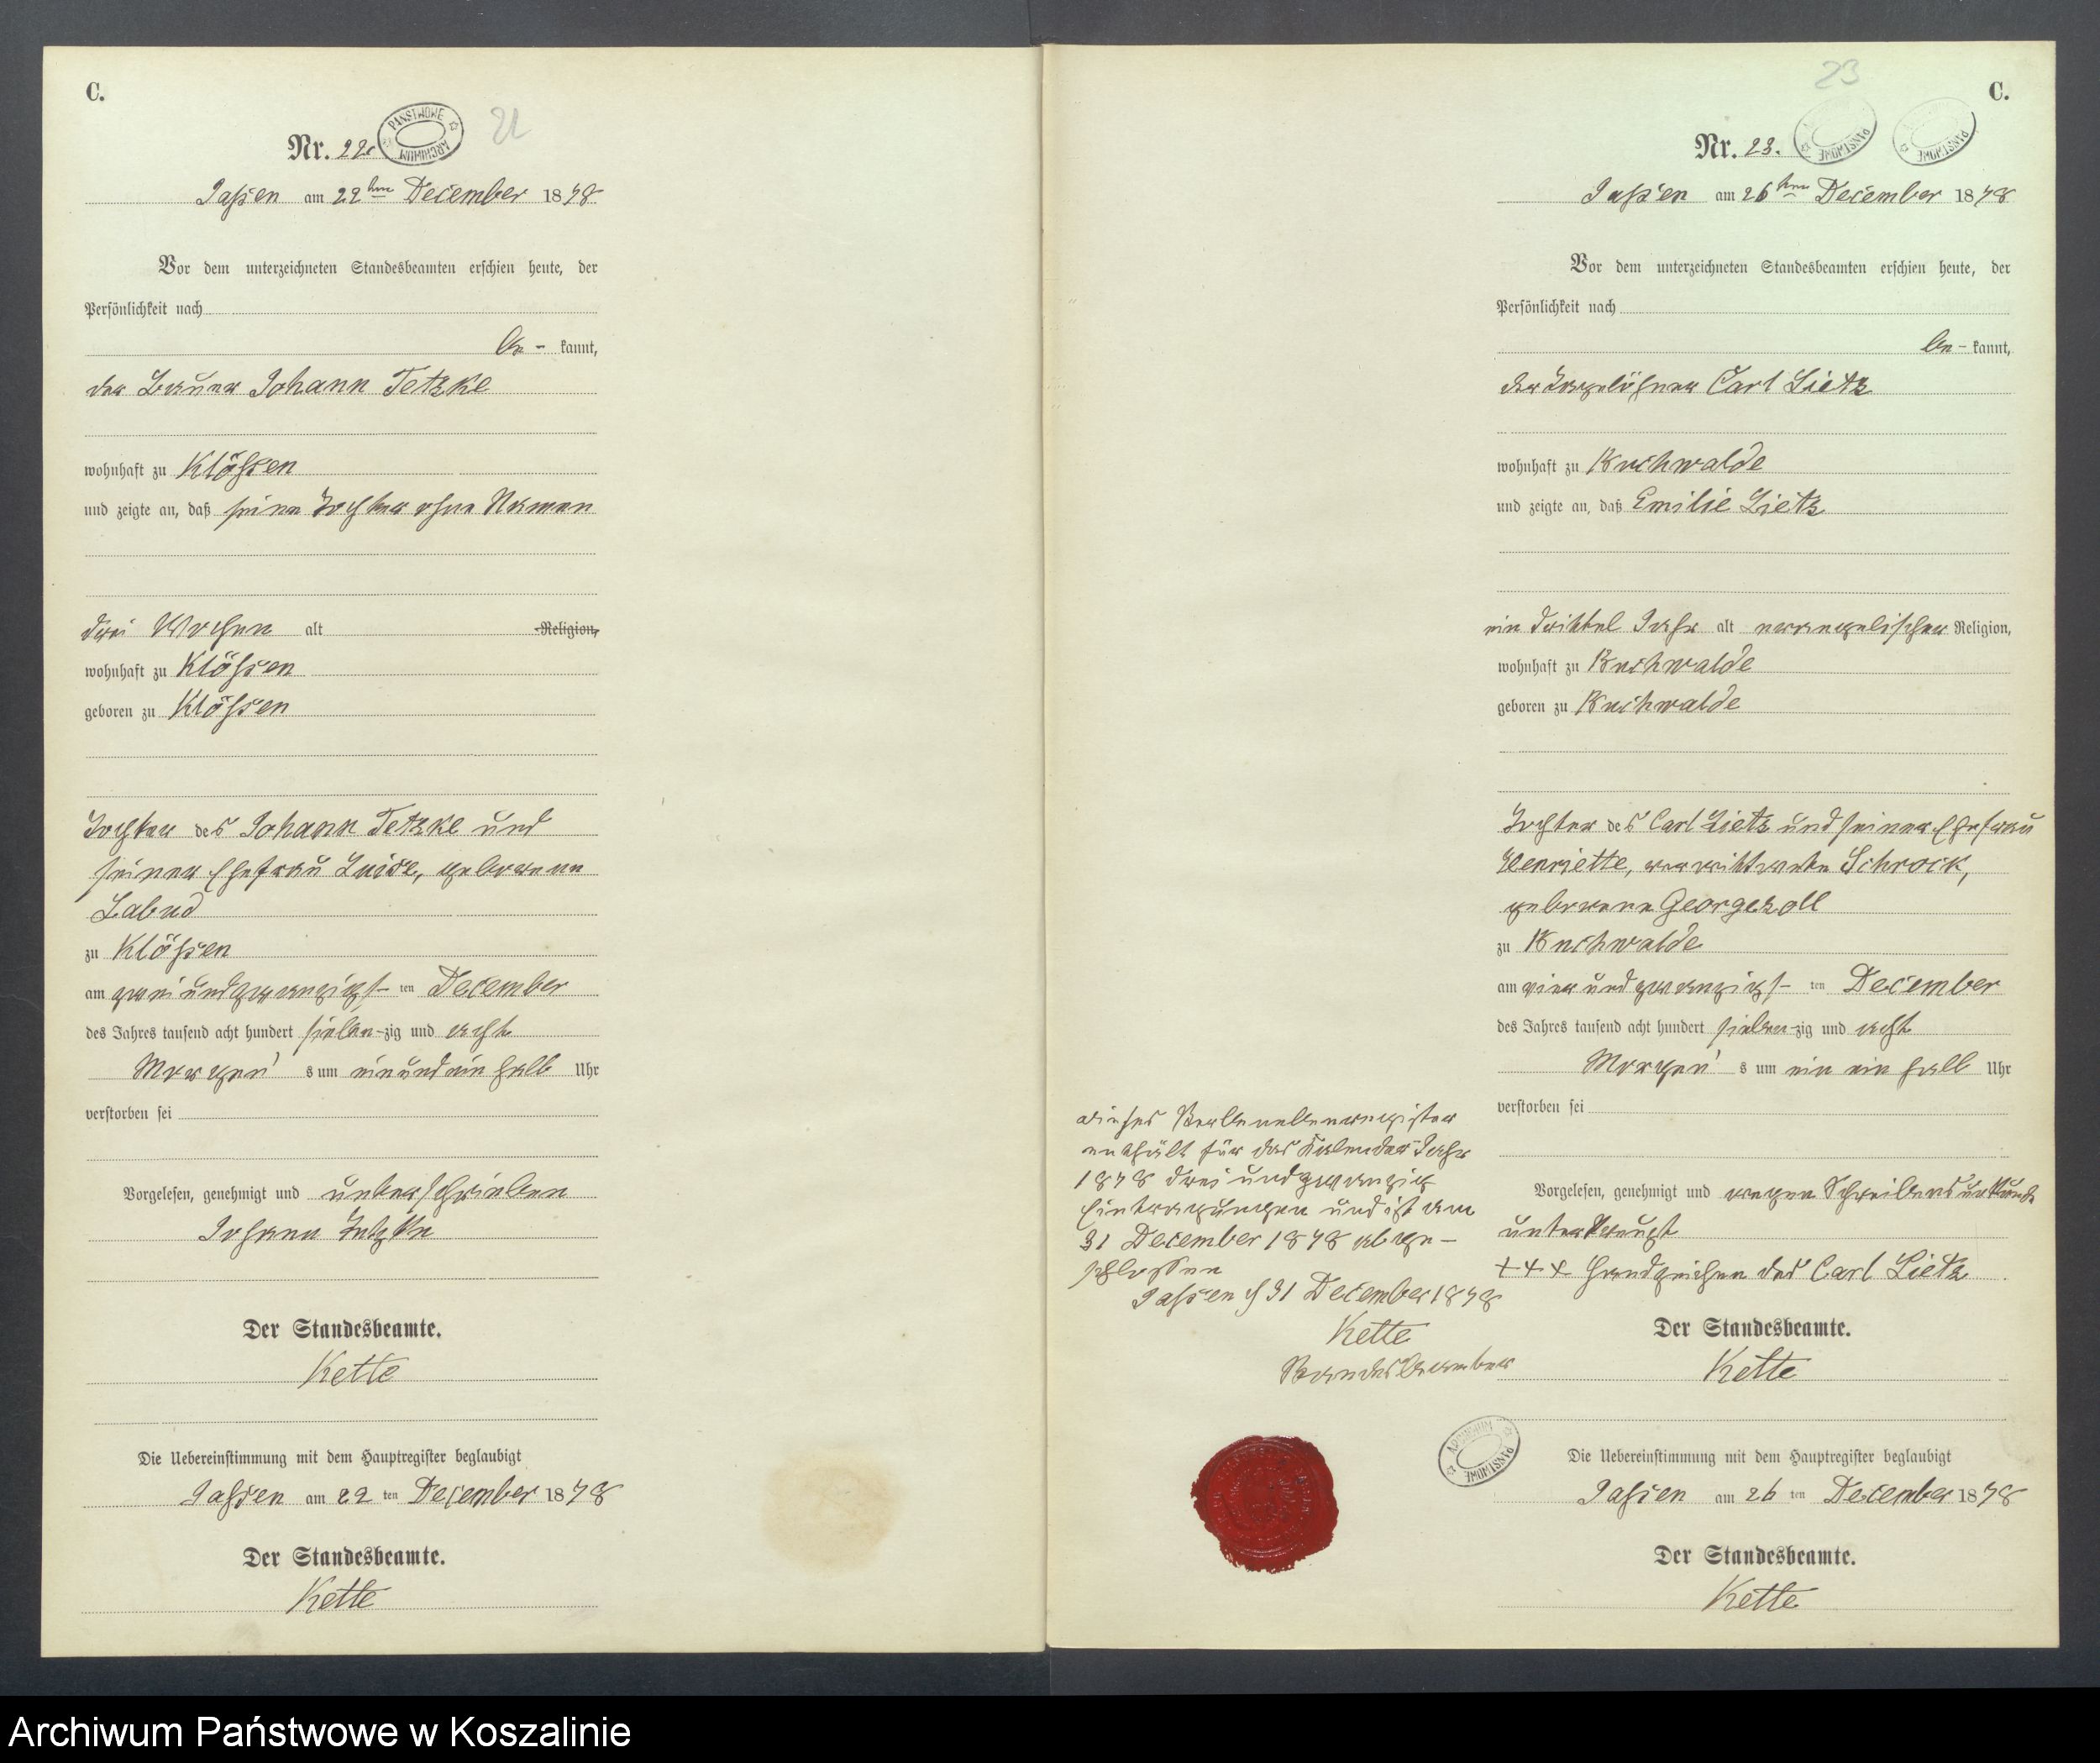 C.
PAŃSTWOWE ARCHIWUM
22
Nr. 22.
Jassen am 22ten December 1878
Vor dem unterzeichneten Standesbeamten erschien heute, der
Persönlichkeit nach
be- kannt,
der Bauer Johann Tetzke
wohnhaft zu Klössen
und zeigte an, daß seine Tochter ohne Namen
drei Wochen alt Religion,
wohnhaft zu Klössen
geboren zu Klössen
Tochter des Johann Tetzke und
seiner Ehefrau Luise, geborene
Labud
zu Klössen
am zweiundzwanzigst-ten December
des Jahres tausend acht hundert sieben-zig und acht
Morgen's um einundeinhalb Uhr
verstorben sei
Vorgelesen, genehmigt und unterschrieben
Johann Tetzke
Der Standesbeamte.
Kette
Die Uebereinstimmung mit dem Hauptregister beglaubigt
Jassen am 22 ten December 1878
Der Standesbeamte.
Kette
23
C.
PAŃSTWOWE
PAŃSTWOWE
Nr. 23.
Jassen am 26ten December 1878
Vor dem unterzeichneten Standesbeamten erschien heute, der
Persönlichkeit nach
be- kannt,
der Tagelöhner Carl Lietz
wohnhaft zu Buchwalde
und zeigte an, daß Emilie Lietz
ein drittel Jahr alt evangelischer Religion,
wohnhaft zu Buchwalde
geboren zu Buchwalde
Tochter des Carl Lietz und seiner Ehefrau
Henriette, verwittwete Schrock,
geborene Georgezoll
zu Buchwalde
am vierundzwanzigst- ten December
des Jahres tausend acht hundert sieben-zig und acht
Morgen's um ein ein halb Uhr
verstorben sei
Vorgelesen, genehmigt und wegen Schreibensunkunde
unterkreuzt
+++ Handzeichen des Carl Lietz
Der Standesbeamte.
Kette
Die Uebereinstimmung mit dem Hauptregister beglaubigt
Jassen am 26 ten December 1878
Der Standesbeamte.
Kette
Dieses Sterbenebenregister
enthält für das Kalender Jahr
1878 dreiundzwanzig
Eintragungen und ist am
31 December 1878 abge-
schlossen
Jassen d 31 December 1878
Kette
Standesbeamter
ARCHIWUM PAŃSTWOWE
Archiwum Państwowe w Koszalinie